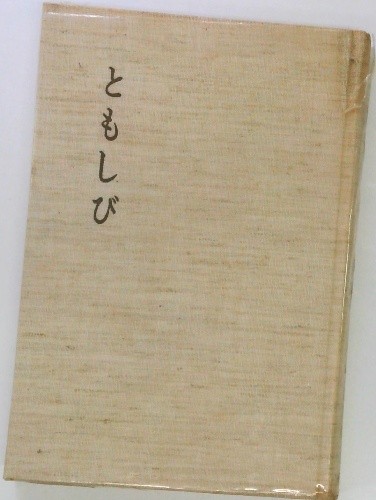 ともしび